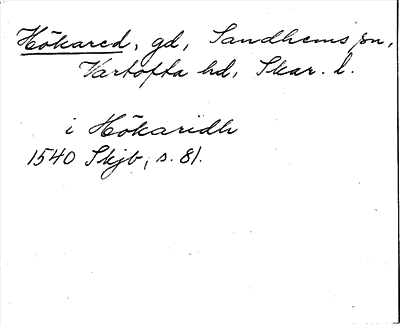 Hökared, gd, Sandhems sn,
Vartofta hd, Skar. l.
i Hökaridh
1540 Skjb, s. 81.